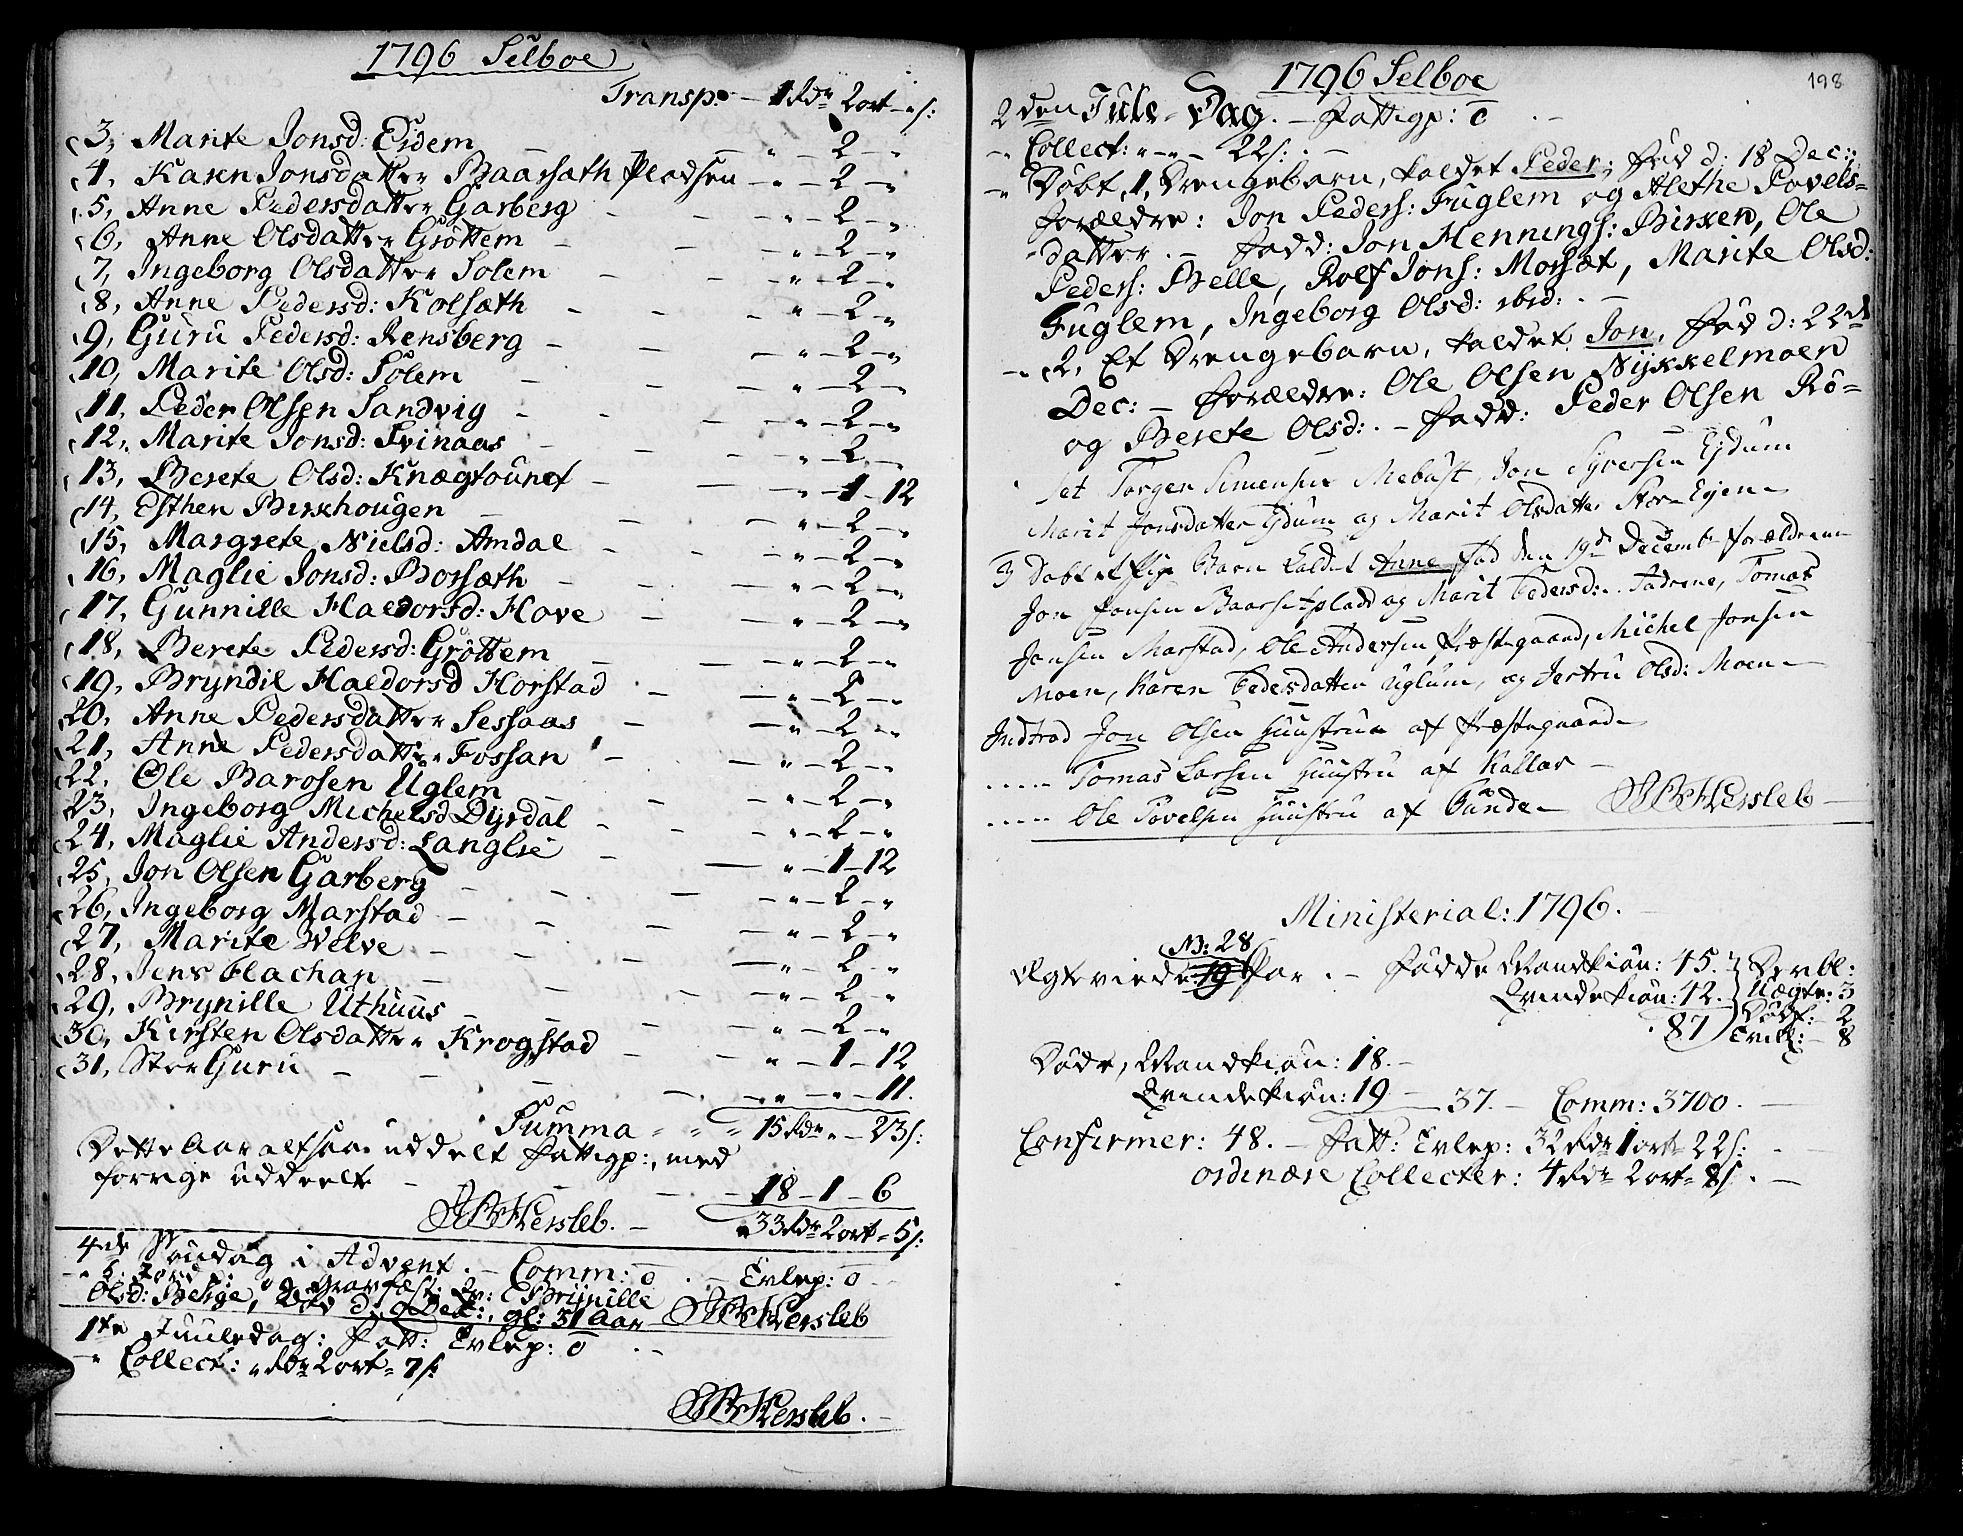 1796 Selboe
Transp: - 1 Rdr 2 ort - s:
3, Marite Jonsd: Eidem - " - 2 - "
4, Karen Jonsdatter Baarsæth Pladsen - " - 2 - "
5, Anne Pedersdatter Garberg - " - 2 - "
6, Anne Olsdatter Gröttem - " - 2 - "
7, Ingeborg Olsdatter Solem - " - 2 - "
8, Anne Pedersd: Kolsæth - " - 2 - "
9, Guru Pedersd: Rensberg - " - 2 - "
10, Marite Olsd: Solem - " - 2 - "
11, Peder Olsen Sandvig - " - 2 - "
12, Marite Jonsd: Svinaas - " - 2 - "
13, Berete Olsd: Knægtount - " - 1 - 12
14, Esther Birkhougen - " - 2 - "
15, Margrete Nielsd: Amdal - " - 2 - "
16, Maglie Jonsd: Borsæth - " - 2 - "
17, Gunnille Haldorsd: Hove - " - 2 - "
18, Berete Pedersd: Gröttem - " - 2 - "
19, Bryndil Haldorsd Horstad - " - 2 - "
20, Anne Pedersdatter Sessaas - " - 2 - "
21, Anne Pedersdatter Fossan - " - 2 - "
22, Ole Barosen Uglem - " - 2 - "
23, Ingeborg Michelsd Dyrdal - " - 2 - "
24, Maglie Andersd: Langlie - " - 1 - 12
25, Jon Olsen Garberg - " - 2 - "
26, Ingeborg Marstad - " - 2 - "
27, Marite Welve - " - 2 - "
28, Jens Flachan - " - 2 - "
29, Brynille Uthuus - " - 2 - "
30, Kirsten Olsdatter Krogstad - " - 1 - 12
31, Store Guru - " - " - 11.
Summa " " " 15 Rdr " - 23 s:
Dette Aar altsaa uddelt Fattigp:, med
forrige uddeelte - 18 - 1 - 6
Hersleb. - 33 Rdr 2 ort - 5 s:
4de Söndag i Advent. - Comm: 0. - Tvlep: 0
Brynille
Olsd: Berge, död d: Dec:, gl: 31 Aar Hersleb
1te Juuledag: Fatt: Tvlep: 0
" Collect: " Rdr 2 ort - 7 s:
Hersleb.
1796 Selboe
198
2den Jule-Dag. - Fattigp: 0
" Collect: " - " - 22 s:. -
" Döbt 1, Drengebarn, kaldet Peder, föd d: 18 Dec:,
Forældre: Jon Peders: Fuglem og Alethe Povels-
datter. - Fadd: Jon Hennings: Birken, Ole
Peders: Belle, Rolf Jons: Morsæt, Marite Olsd:
Fuglem, Ingeborg Olsd: ibid:. -
" 2, Et Drengebarn, kaldet Jon, föd d: 22de
Dec: - Forældre: Ole Olsen Nykkelmoen
og Berete Olsd:. - Fadd: Peder Olsen Rö-
set Torger Simensen Mebust, Jon Syversen Ejdum
Marit Jonsdatter Ejdum og Marit Olsdatter Stor-Evjen
3 Döbt et Pige Barn kaldet Anne föd den 19de Decemb Forældrene
Jon Jonsen Baarsetplads og Marit Pedersd:. Fadrene, Tomas
Jonsen Marstad, Ole Andersen Præstegaard, Michel Jonsen
Moen, Karen Pedersdatter Uglum, og Jertru Olsd: Moen
Indtrad Jon Olsen Huustrue af Præstegaard
..... Tomas Larsen Huustru af Kallar
..... Ole Povelsen Huustru af Bunde Hersleb
Ministerial: 1796.
N: 28
Ægteviede: 19 Par. - Födde Mandkiön: 45. Dend:
Qvindekiön: 42. Uægte: 3
87 Dödf: 2
Tvill: 8
Döde, Mandkiön: 18. -
Qvindekiön: 19 - 37. - Comm: 3700. -
Confirmer: 48. - Fatt: Tvlep: 32 Rdr 1 ort - 22 s:
ordinære Collecter: 4 Rdr 2 ort - 8 s. -